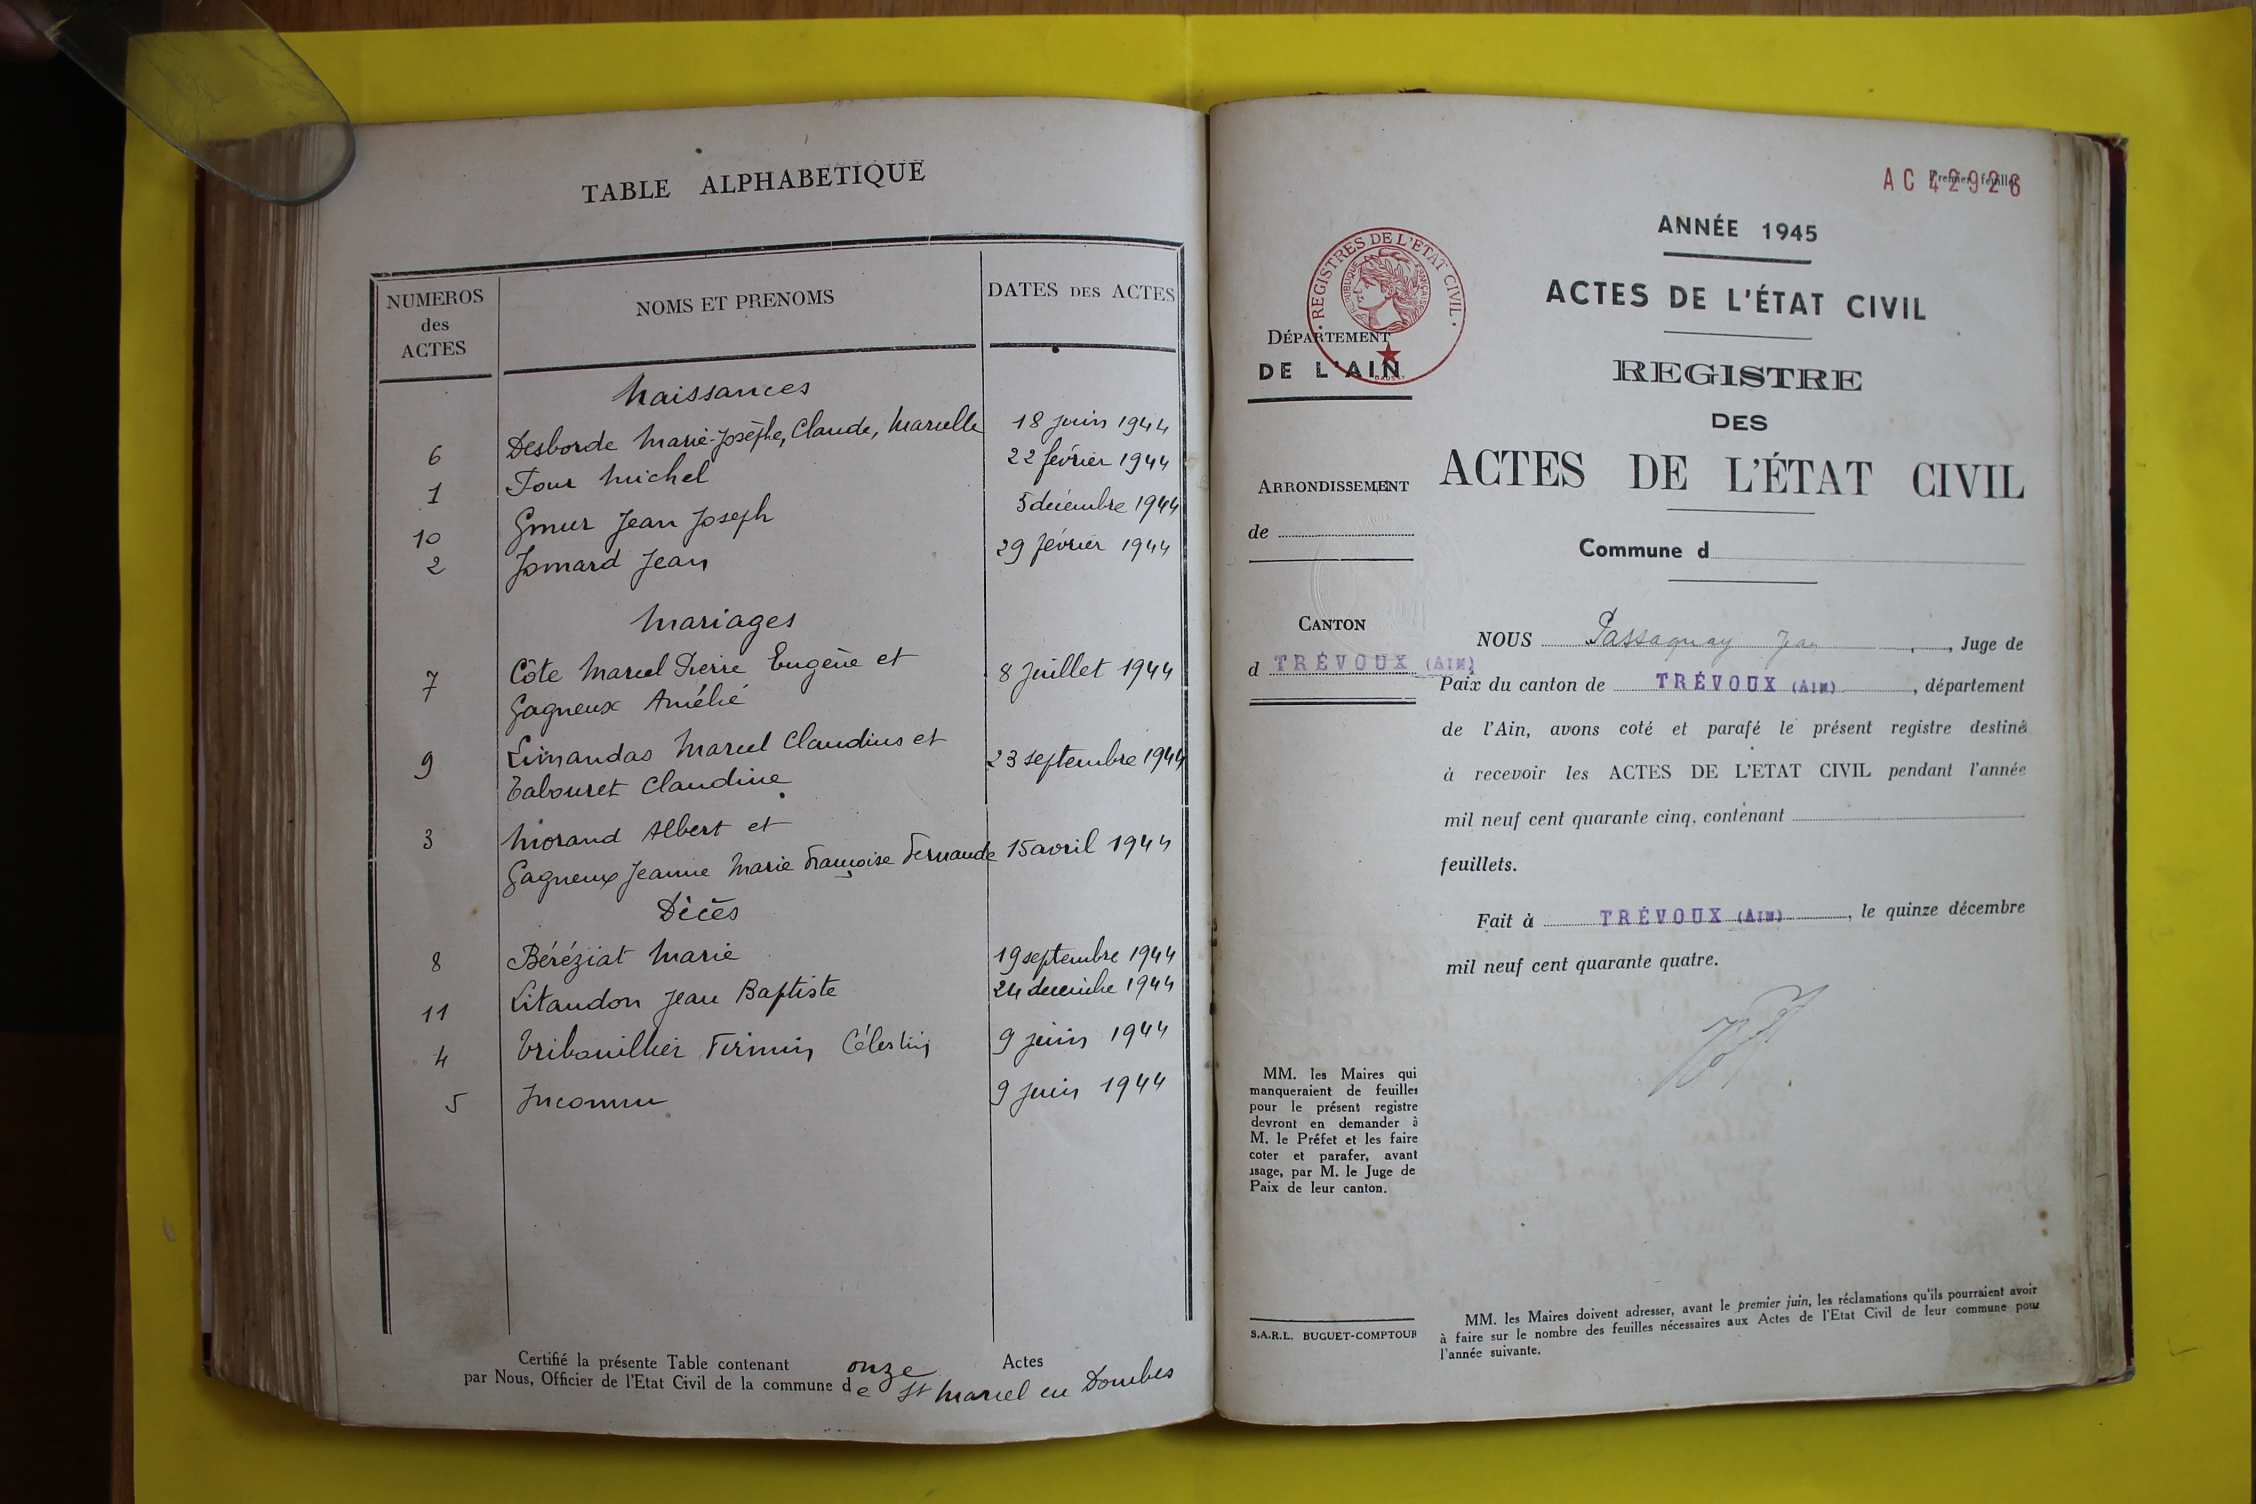 TABLE ALPHABETIQUE
NUMEROS
des
ACTES
NOMS ET PRENOMS
DATES DES ACTES
Naissances
6 Desborde Marie-Josèphe, Claude, Marcelle 18 juin 1944
1 Four Michel 22 février 1944
10 Gmur Jean Joseph 5 décembre 1944
2 Jomard Jean 29 février 1944
Mariages
7 Côte Marcel Pierre Eugène et 8 Juillet 1944
Gagneux Amélie
9 Limandas Marcel Claudius et 23 septembre 1944
Tabouret Claudine
3 Morand Albert et
Gagneux Jeanne Marie Françoise Fernande 15 avril 1944
Décès
8 Béréziat Marie 19 septembre 1944
11 Litaudon Jean Baptiste 24 décembre 1944
4 Tribouillier Firmin Célestin 9 juin 1944
5 Inconnu 9 juin 1944
Certifié la présente Table contenant onze Actes
par Nous, Officier de l'Etat Civil de la commune de St Marcel en Dombes
AC 42926
Premier feuillet
ANNÉE 1945
ACTES DE L'ÉTAT CIVIL
REGISTRES DE L'ETAT CIVIL
REPUBLIQUE FRANÇAISE
DÉPARTEMENT
DE L'AIN
REGISTRE
DES
ACTES DE L'ÉTAT CIVIL
ARRONDISSEMENT
de
Commune d
CANTON
d TRÉVOUX (AIN)
NOUS Passaquay Jean, Juge de
Paix du canton de TRÉVOUX (AIN), département
de l'Ain, avons coté et parafé le présent registre destiné
à recevoir les ACTES DE L'ETAT CIVIL pendant l'année
mil neuf cent quarante cinq, contenant
feuillets.
Fait à TRÉVOUX (AIN), le quinze décembre
mil neuf cent quarante quatre.
MM. les Maires qui
manqueraient de feuilles
pour le présent registre
devront en demander à
M. le Préfet et les faire
coter et parafer, avant
usage, par M. le Juge de
Paix de leur canton.
S.A.R.L. BUGUET-COMPTOUR
MM. les Maires doivent adresser, avant le premier juin, les réclamations qu'ils pourraient avoir
à faire sur le nombre des feuilles nécessaires aux Actes de l'Etat Civil de leur commune pour
l'année suivante.